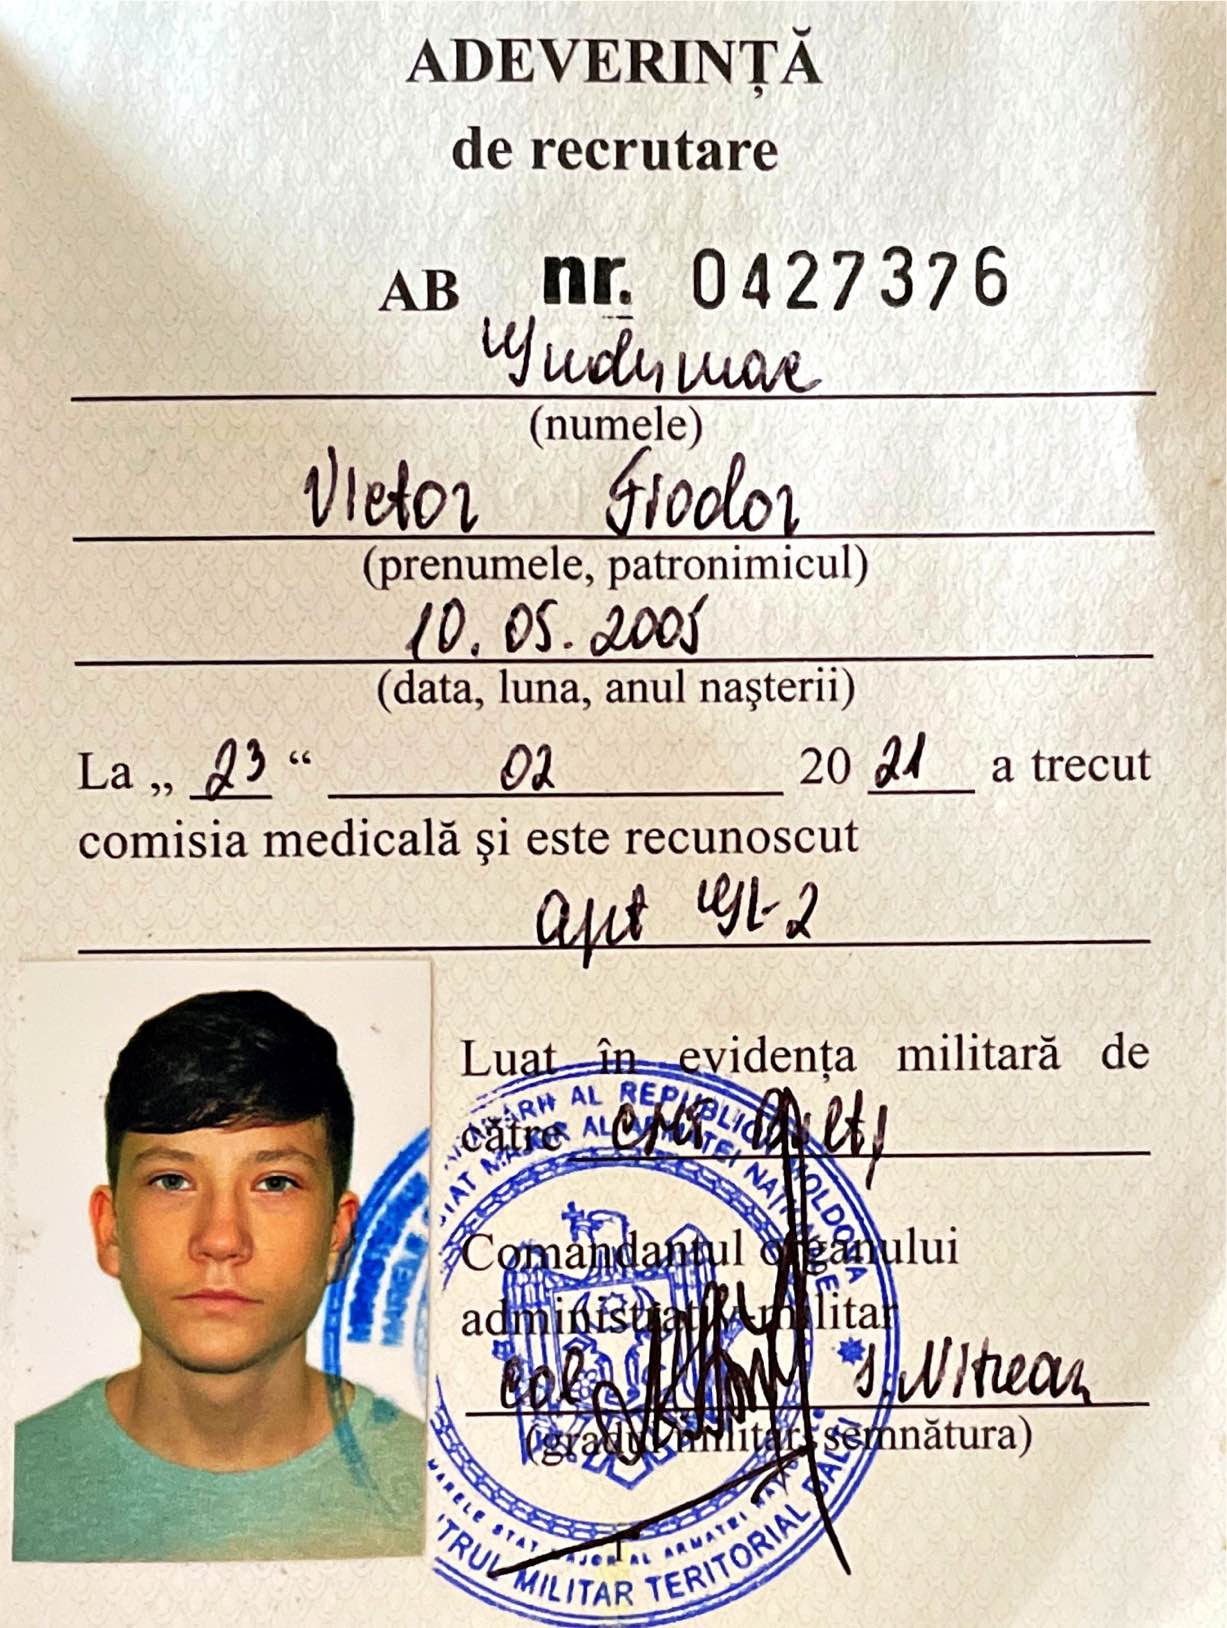 ADEVERINȚĂ
de recrutare
AB nr. 0427376
(numele)
Victor Fiodor
(prenumele, patronimicul)
10.05.2005
(data, luna, anul naşterii)
La „ 23 “ 02 20 21 a trecut
comisia medicală şi este recunoscut
apt 2
Luat în evidența militară de
către CMT
Comandantul organului
administrativ-militar
col. I. Nitrean
(gradul militar, semnătura)
AL REPUBLICII MOLDOVA
MARELE STAT MAJOR AL ARMATEI NAȚIONALE
CENTRUL MILITAR TERITORIAL BĂLȚI